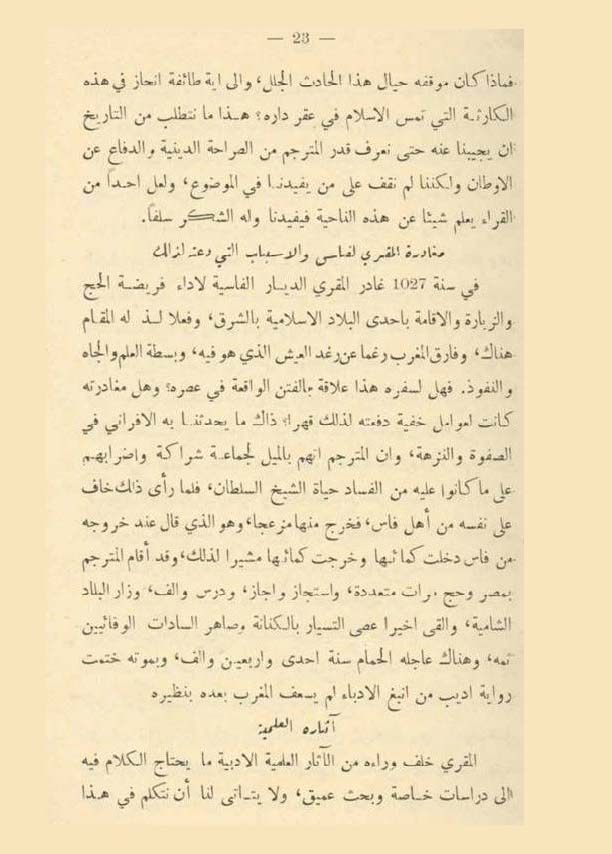 — 23 —
فماذا كان موقفه حيال هذا الحادث الجلل، والى اية طائفة انحاز في هذه
الكارثة التي تمس الاسلام في عقر داره؟ هذا ما نتطلب من التاريخ
ان يجيبنا عنه حتى نعرف قدر المترجم من الصراحة الدينية والدفاع عن
الاوطان ولكننا لم نقف على من يفيدنا في الموضوع، ولعل احداً من
القراء يعلم شيئا عن هذه الناحية فيفيدنا وله الشكر سلفاً.
مغادرة المقري لفاس والاسباب التي دعته لذلك
في سنة 1027 غادر المقري الديار الفاسية لاداء فريضة الحج
والزيارة والاقامة باحدى البلاد الاسلامية بالشرق، وفعلا لذ له المقام
هناك، وفارق المغرب رغما عن رغد العيش الذي هو فيه، وبسطة العلم والجاه
والنفوذ. فهل لسفره هذا علاقة بالفتن الواقعة في عصره؟ وهل مغادرته
كانت لعوامل خفية دفعته لذلك قهرا؟ ذاك ما يحدثنا به الافراني في
الصفوة والنزهة، وان المترجم اتهم بالميل لجماعة شراكة واضرابهم
على ما كانوا عليه من الفساد حياة الشيخ السلطان، فلما رأى ذلك خاف
على نفسه من أهل فاس، فخرج منها مزعجا، وهو الذي قال عند خروجه
من فاس دخلت كمائها وخرجت كمائها مشيرا لذلك، وقد أقام المترجم
بمصر وحج مرات متعددة، واستجاز واجاز، ودرس والف، وزار البلاد
الشامية، والقى اخيرا عصى التسيار بالكنانة وصاهر السادات الوفائيين
ثمه، وهناك عاجله الحمام سنة احدى واربعين والف، وبموته ختمت
رواية اديب من انبغ الادباء لم يسعف المغرب بعده بنظيره
آثاره العلمية
المقري خلف وراءه من الآثار العلمية الادبية ما يحتاج الكلام فيه
الى دراسات خاصة وبحث عميق، ولا يتأنى لنا أن نتكلم في هذا